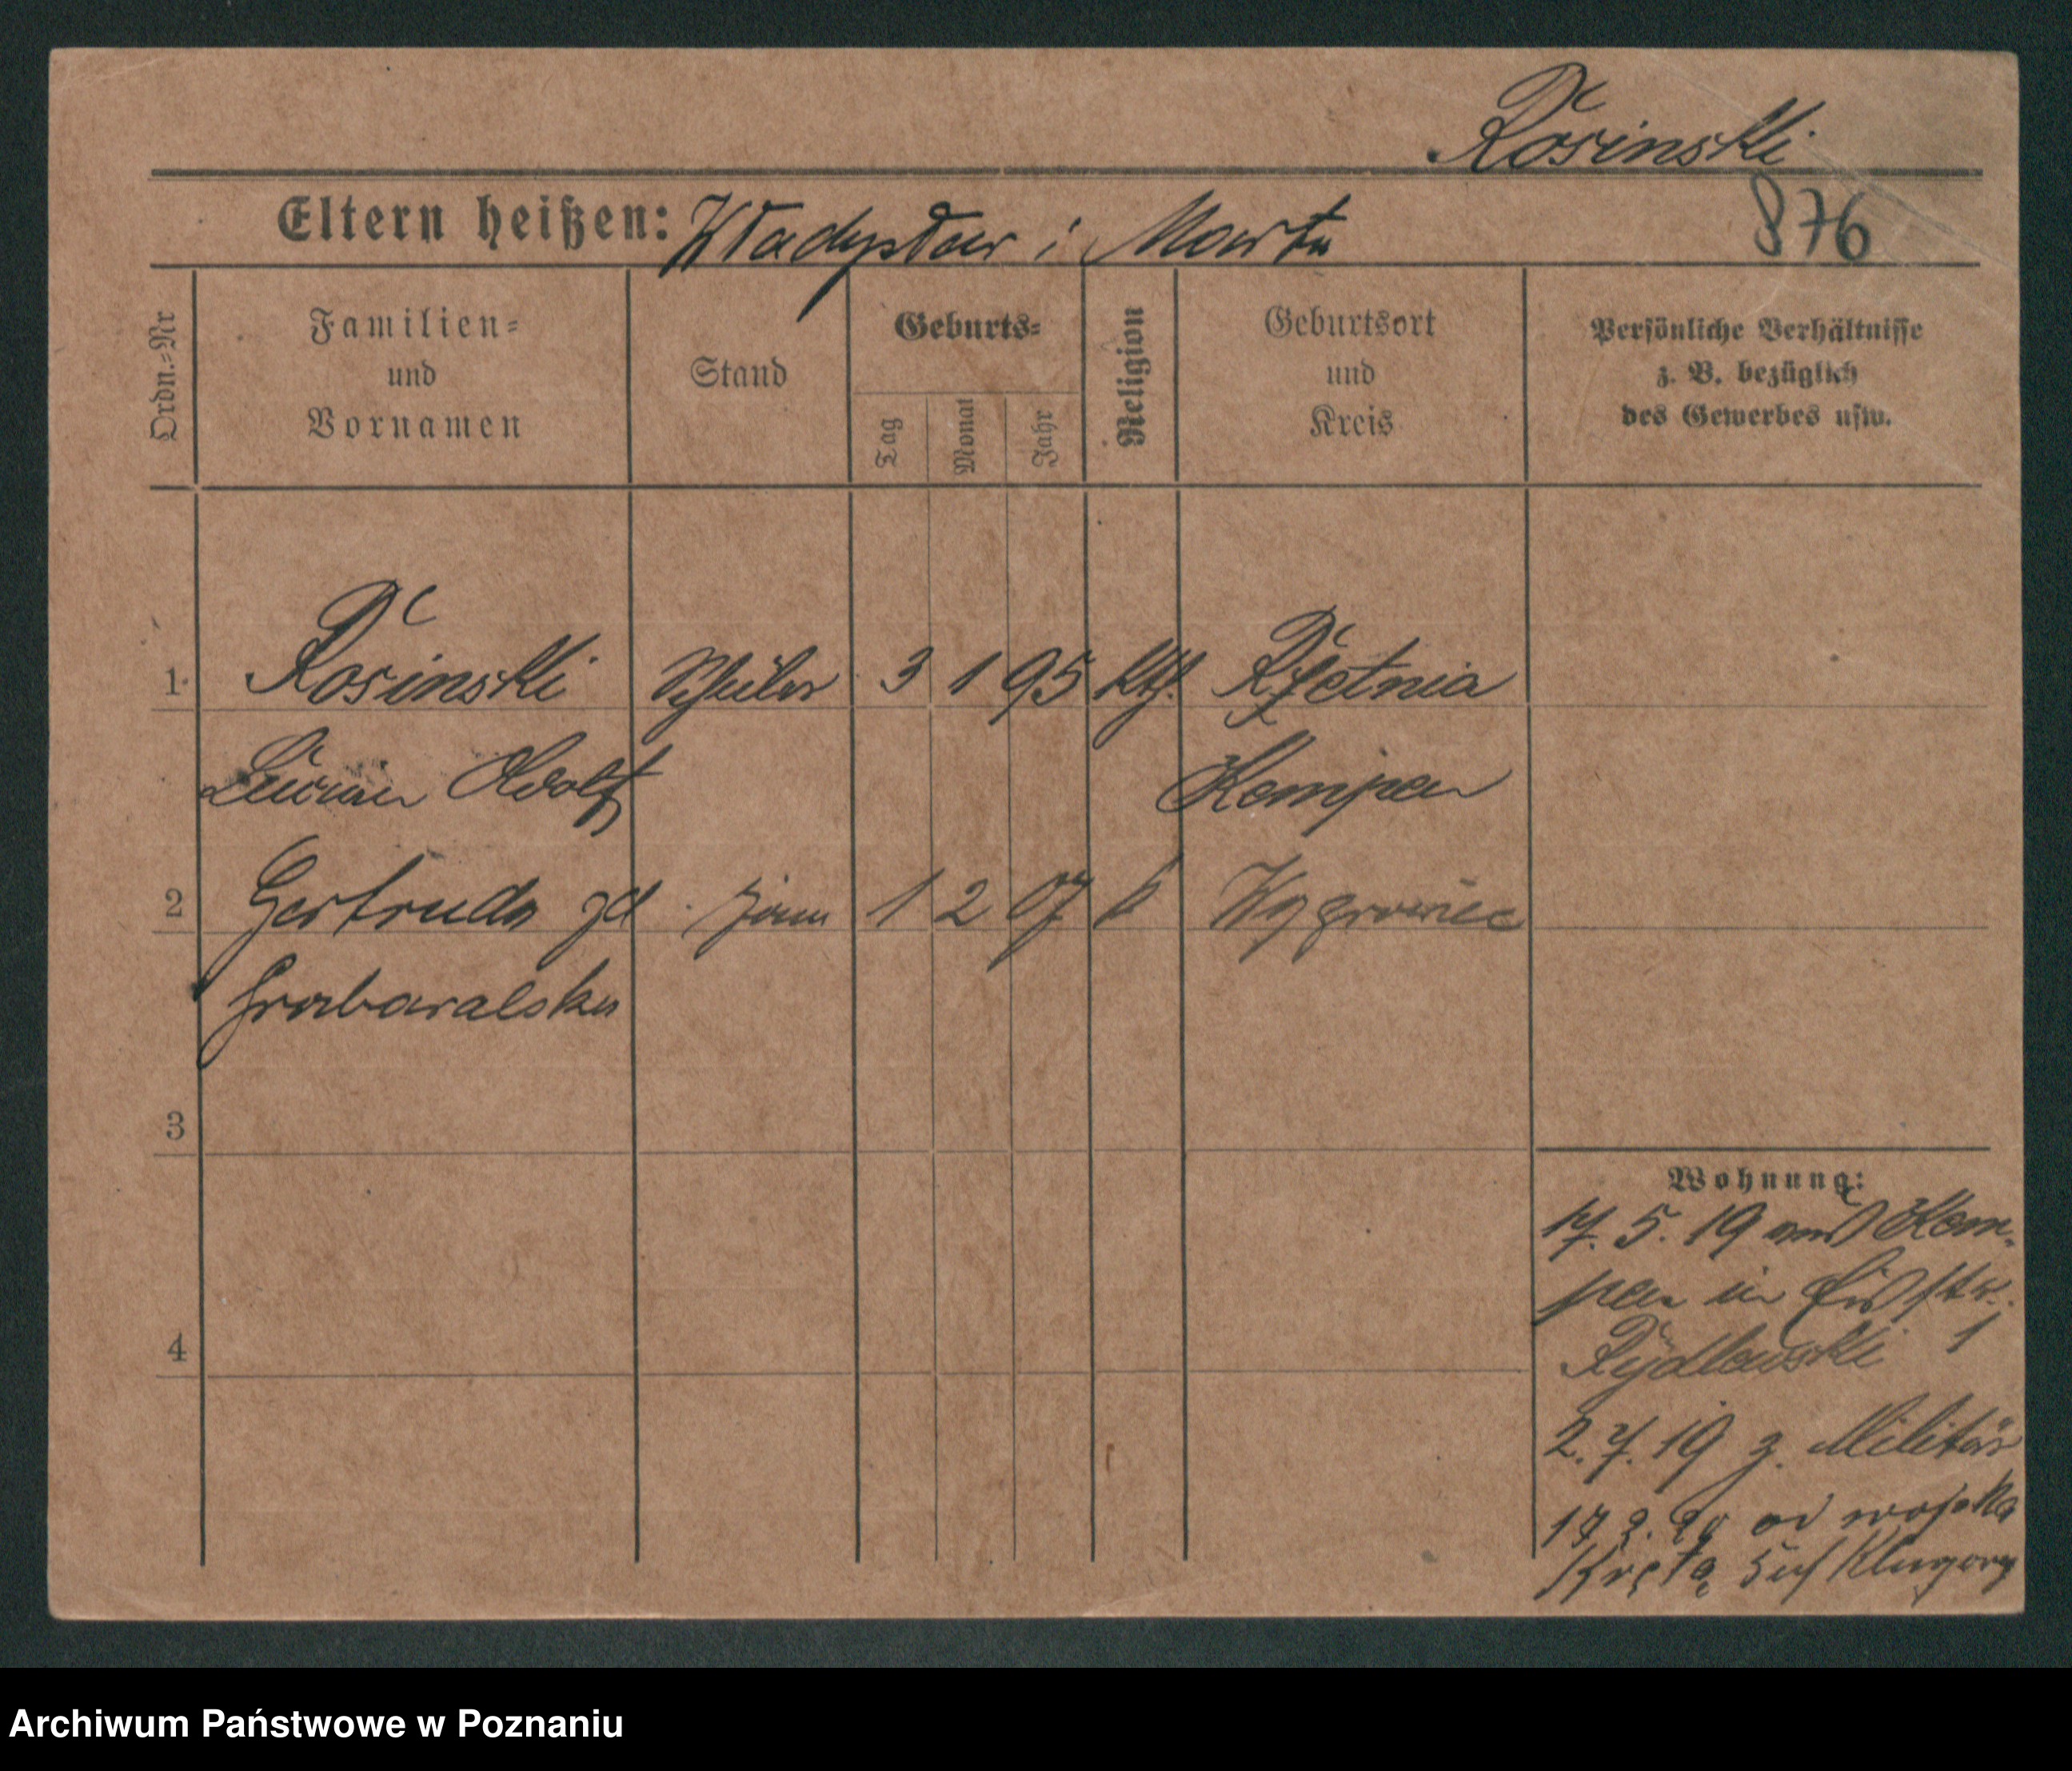 Rosinski
Eltern heißen: Władysław i Marta
876
Ordn.-Nr
Familien-
und
Vornamen
Stand
Geburts-
Tag
Monat
Jahr
Religion
Geburtsort
und
Kreis
Persönliche Verhältnisse
z. B. bezüglich
des Gewerbes usw.
1 Rosinski Schüler 3 1 95 kth. Rzetnia
Adolf Kempen
2 Gertruda zd żona 1 2 07 k Wągrowiec
3
4
Wohnung:
17. 5. 19 aus Kem-
pen in
Rydlewski 1
2. 7. 19 z. Militär
od wojska
Kręta
Archiwum Państwowe w Poznaniu